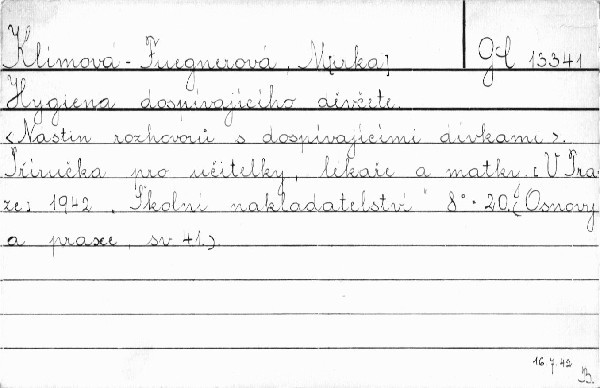 Klímová-Fuegnerová, M[irka]
Gd 13341
Hygiena dospívajícího děvčete.
<Nástin rozhovorů s dospívajícími dívkami>.
Příručka pro učitelky, lékaře a matky. [V Pra-
ze:] 1942. Školní nakladatelství 8°. 20. (Osnovy
a praxe, sv. 41.)
16.7.42